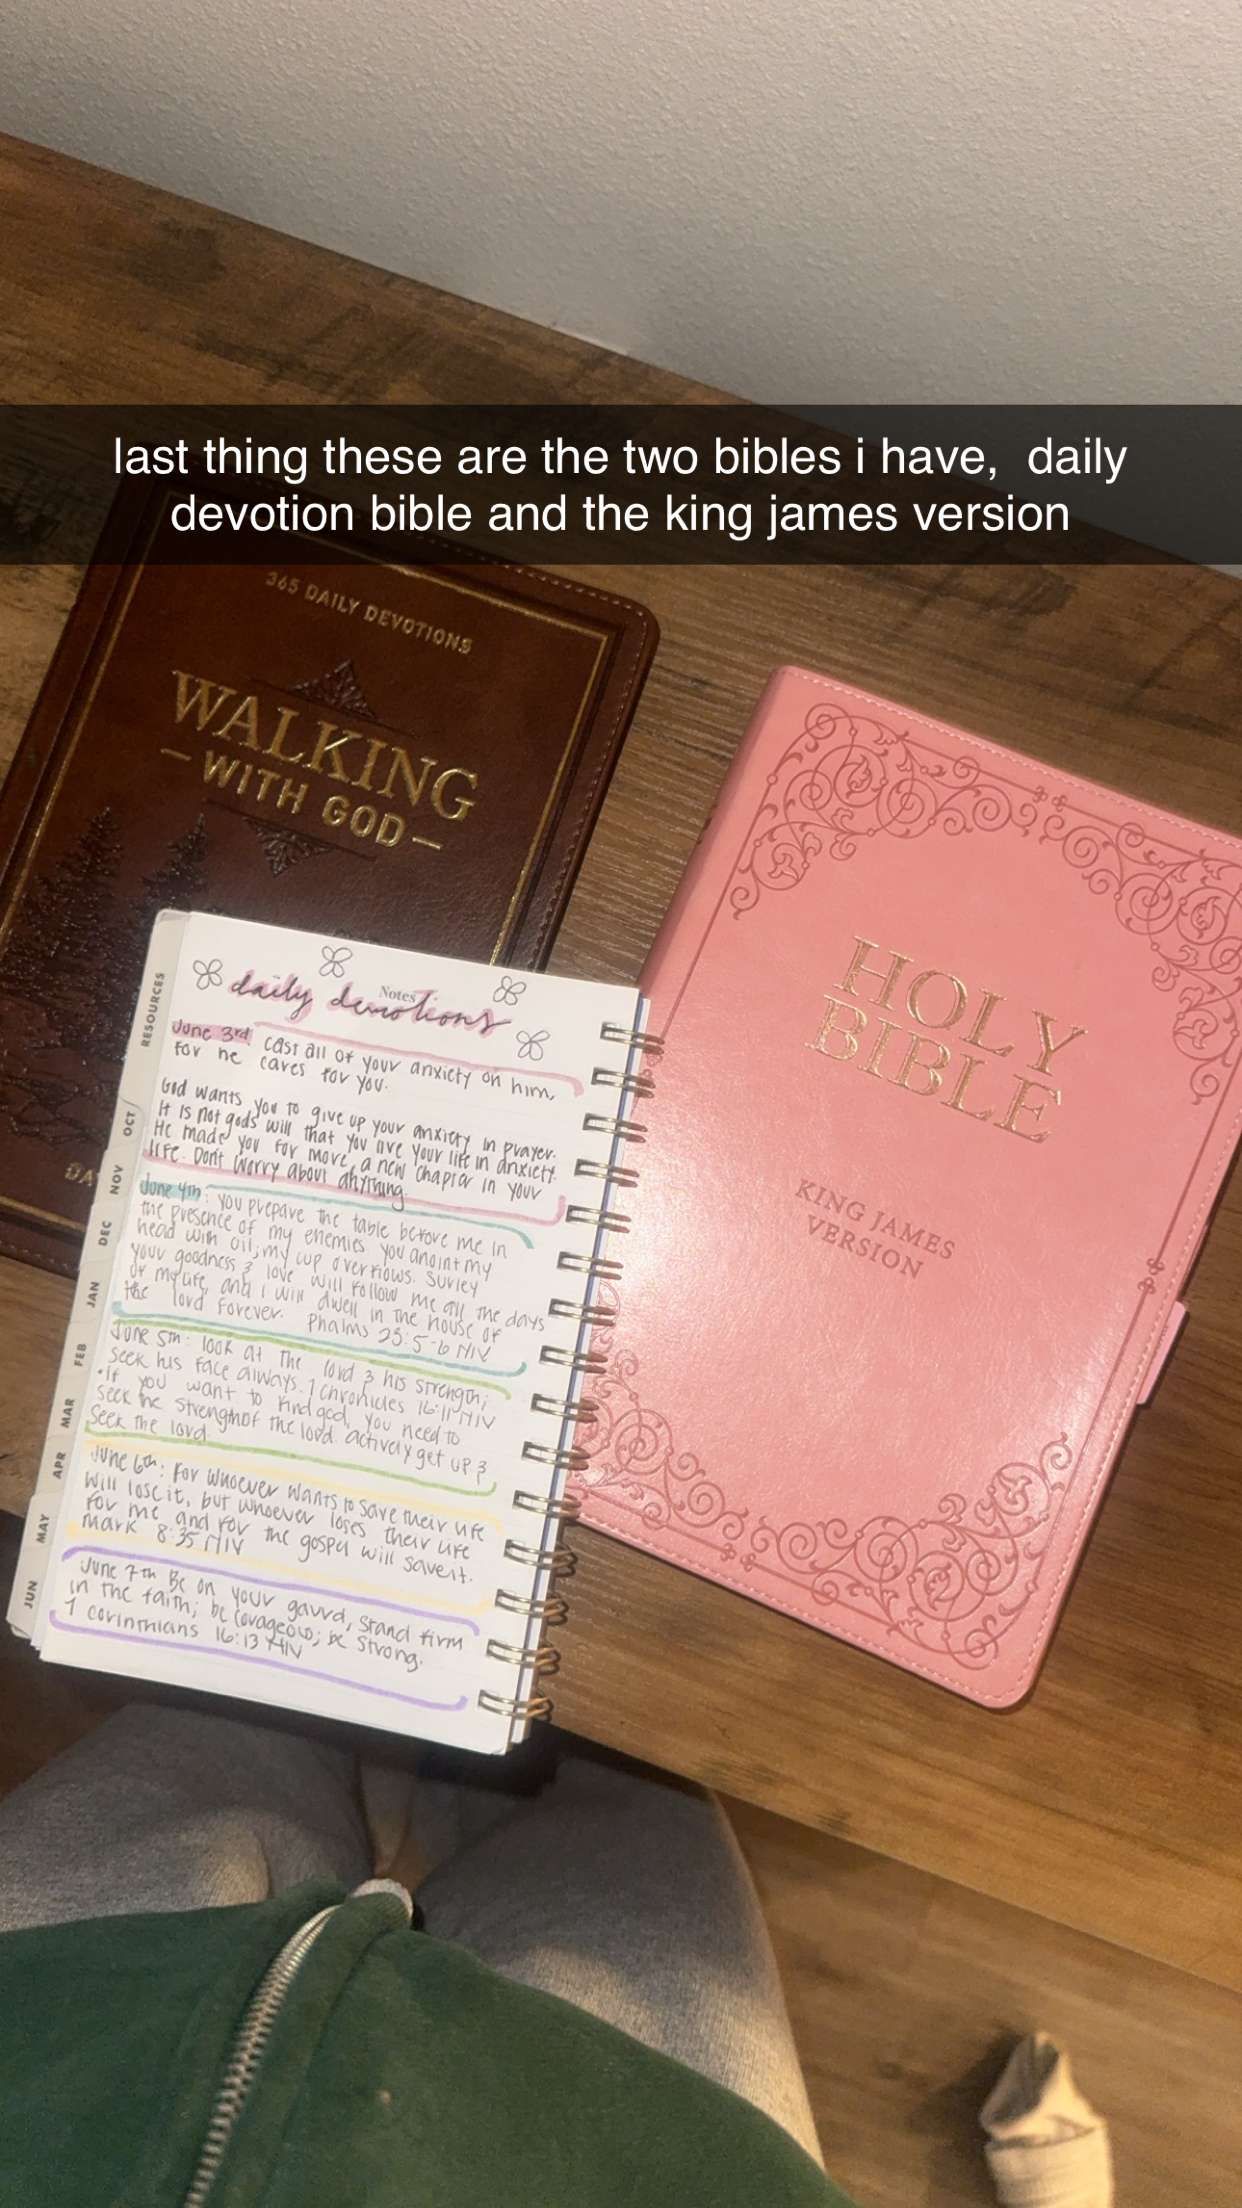 last thing these are the two bibles i have, daily
devotion bible and the king james version
365 DAILY DEVOTIONS
WALKING
– WITH GOD –
DA
HOLY
BIBLE
KING JAMES
VERSION
Notes
daily devotions
June 3rd cast all of your anxiety on him,
for he cares for you.
God wants you to give up your anxiety in prayer.
It is not gods will that you live your life in anxiety.
He made you for more, a new chapter in your
life. Don't worry about anything.
June 4th: you prepare the table before me in
the presence of my enemies you anoint my
head with oil; my cup overflows. Surley
your goodness & love will follow me all the days
of my life, and i will dwell in the house of
the lord forever. Phalms 23:5-6 NIV
June 5th: look at the lord & his strength;
seek his face always. 1 chronicles 16:11 NIV
• if you want to find god, you need to
seek the strength of the lord. actively get up &
seek the lord.
June 6th: For whoever wants to save their life
will lose it, but whoever loses their life
for me and for the gospel will save it.
mark 8:35 NIV
June 7th Be on your gaurd, stand firm
in the faith; be courageous; be strong.
1 corinthians 16:13 NIV
RESOURCES
OCT
NOV
DEC
JAN
FEB
MAR
APR
MAY
JUN